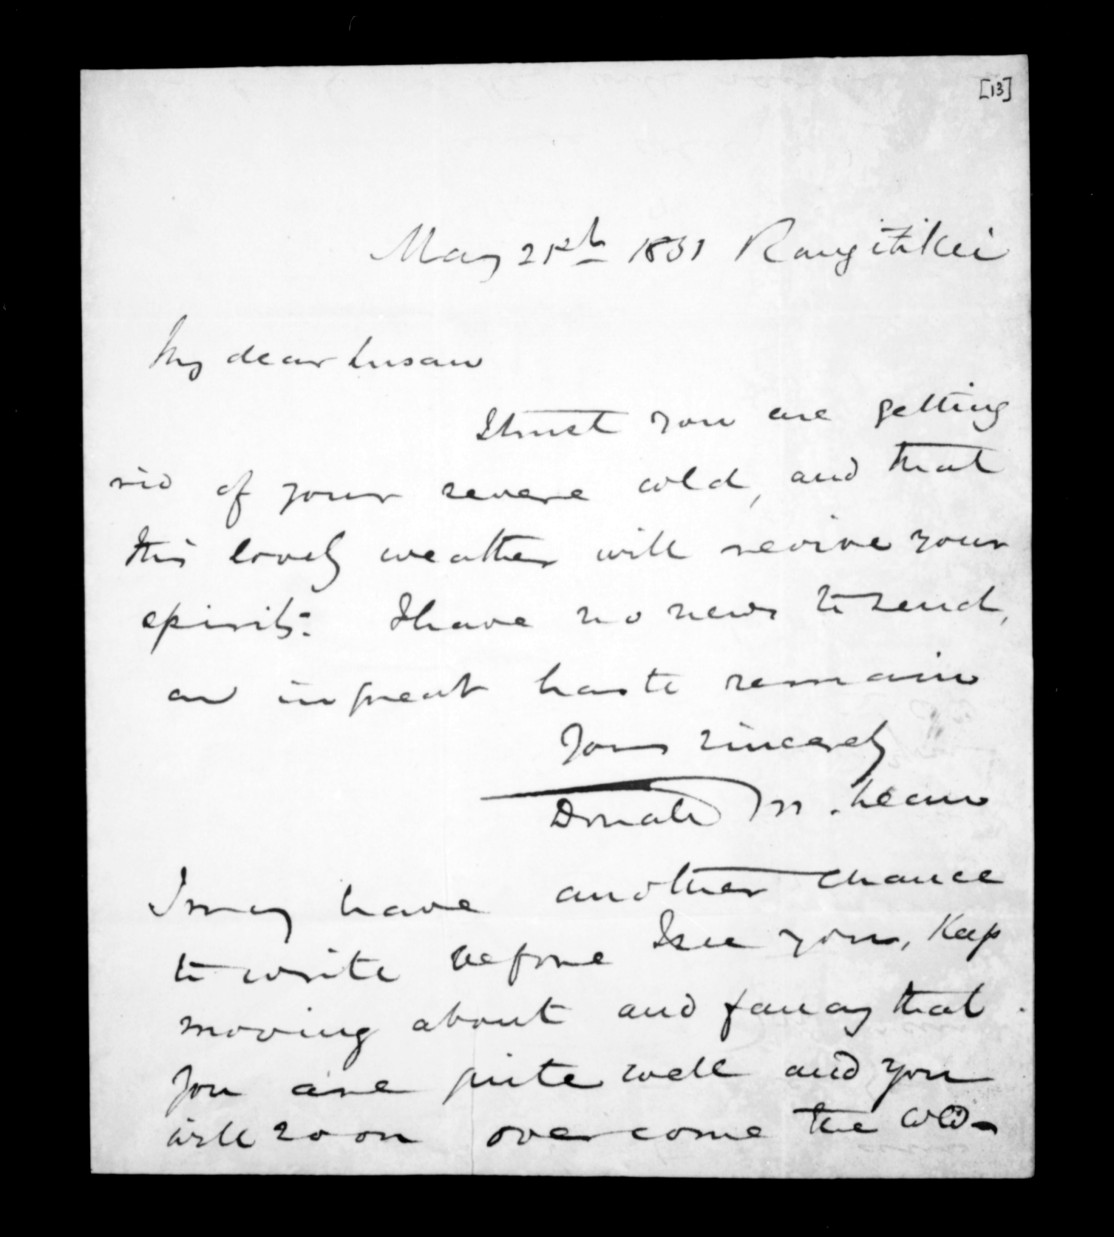 [13]
May 21st 1851 Rangitikei
My dear Susan
I trust you are getting
rid of your severe cold, and that
this lovely weather will revive your
spirits. I have no news to send,
and in great haste remain
Yours sincerely
Donald McLean
I may have another chance
to write before I see you, Keep
moving about and fancy that
you are quite well and you
will soon overcome the cold